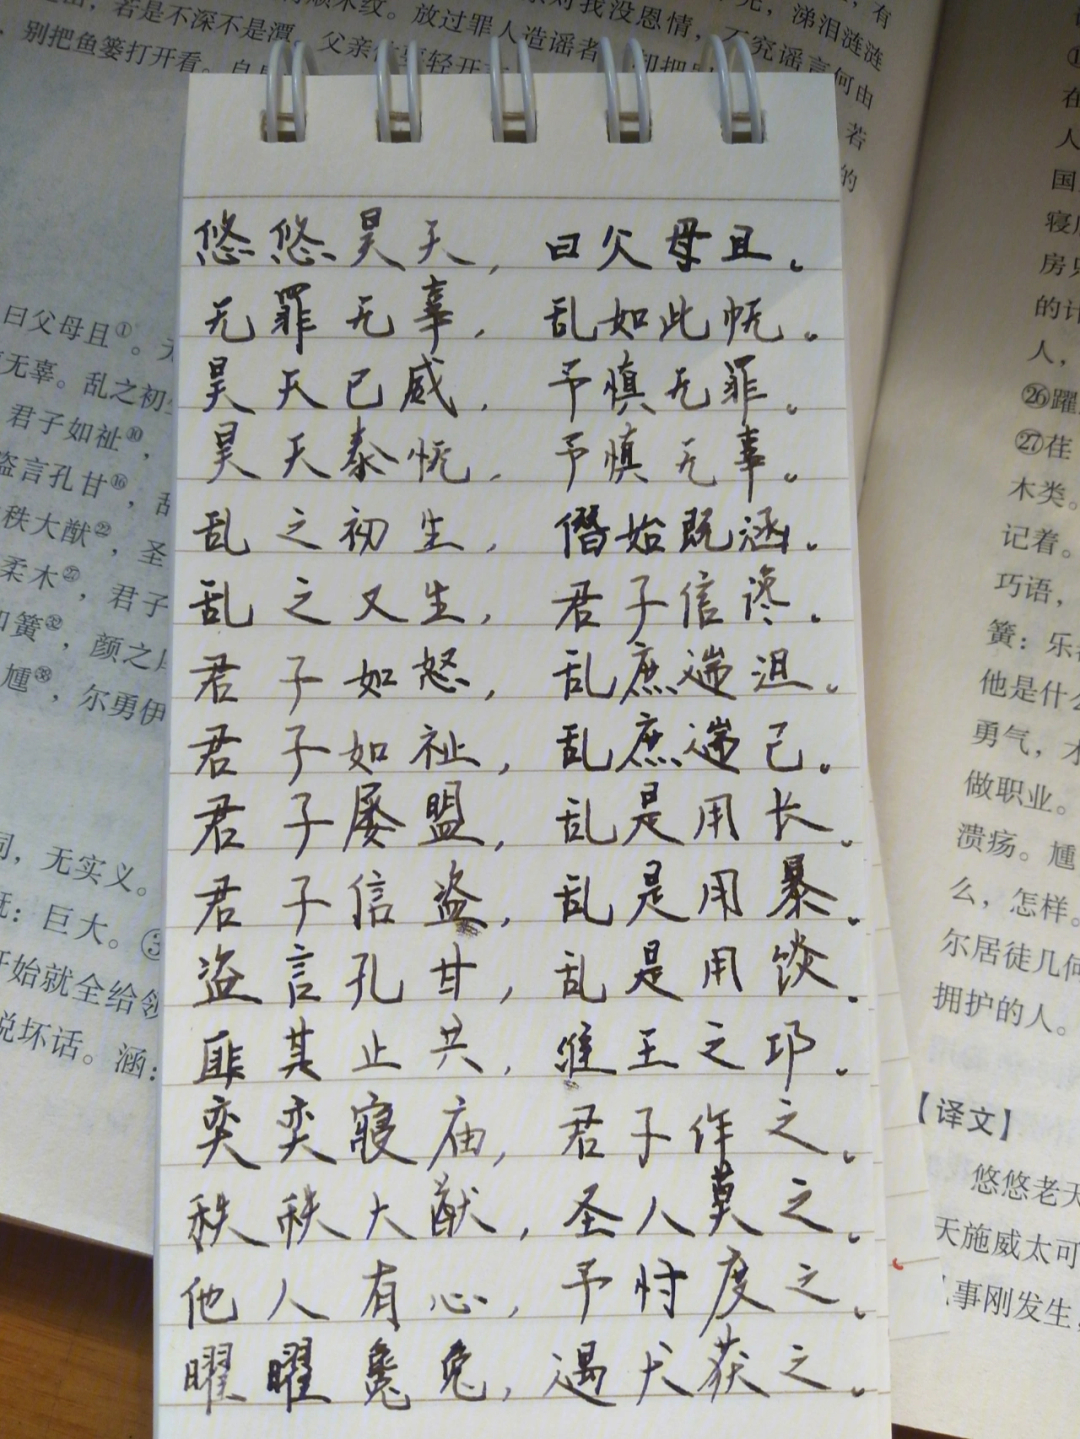 若是不深不是潭。父亲
别把鱼篓打开看。
放过罪人造谣者
对我没恩情，
涕泪涟涟
若
的
悠悠昊天，曰父母且。
无罪无辜，乱如此怃。
昊天已威，予慎无罪。
昊天泰怃，予慎无辜。
乱之初生，僭始既涵。
乱之又生，君子信谗。
君子如怒，乱庶遄沮。
君子如祉，乱庶遄己。
君子屡盟，乱是用长。
君子信盗，乱是用暴。
盗言孔甘，乱是用餤。
匪其止共，维王之邛。
奕奕寝庙，君子作之。
秩秩大猷，圣人莫之。
他人有心，予忖度之。
曜曜毚兔，遇犬获之。
曰父母且①。
无辜。乱之初
君子如祉⑩，
盗言孔甘⑯，
秩大猷㉒，圣
柔木㉗，君子
簧㉜，颜之
尰㊳，尔勇伊
词，无实义。
巨大。
开始就全给
说坏话。涵：
在
人
国
寝
房
的计
人，
㉖躍
㉗荏
木类。
记着。
巧语，
簧：乐
他是什么
勇气，才
做职业。
溃疡。尰
么，怎样。
尔居徒几何
拥护的人。
【译文】
悠悠老天
天施威太可
事刚发生，